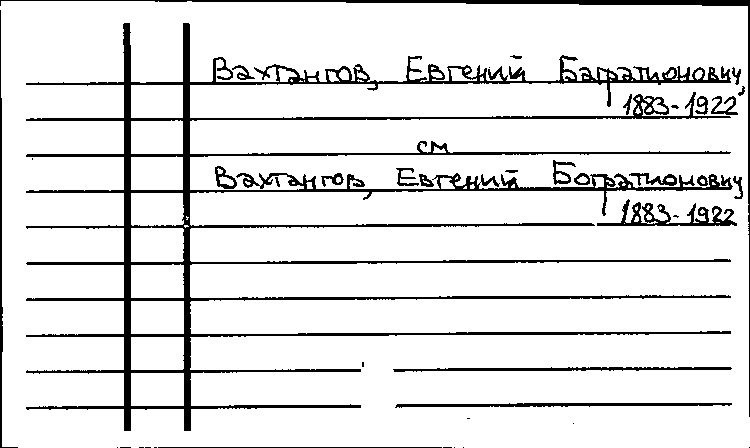 Вахтангов, Евгений Багратионович,
1883-1922
см
Вахтангов, Евгений Богратионович,
1883-1922